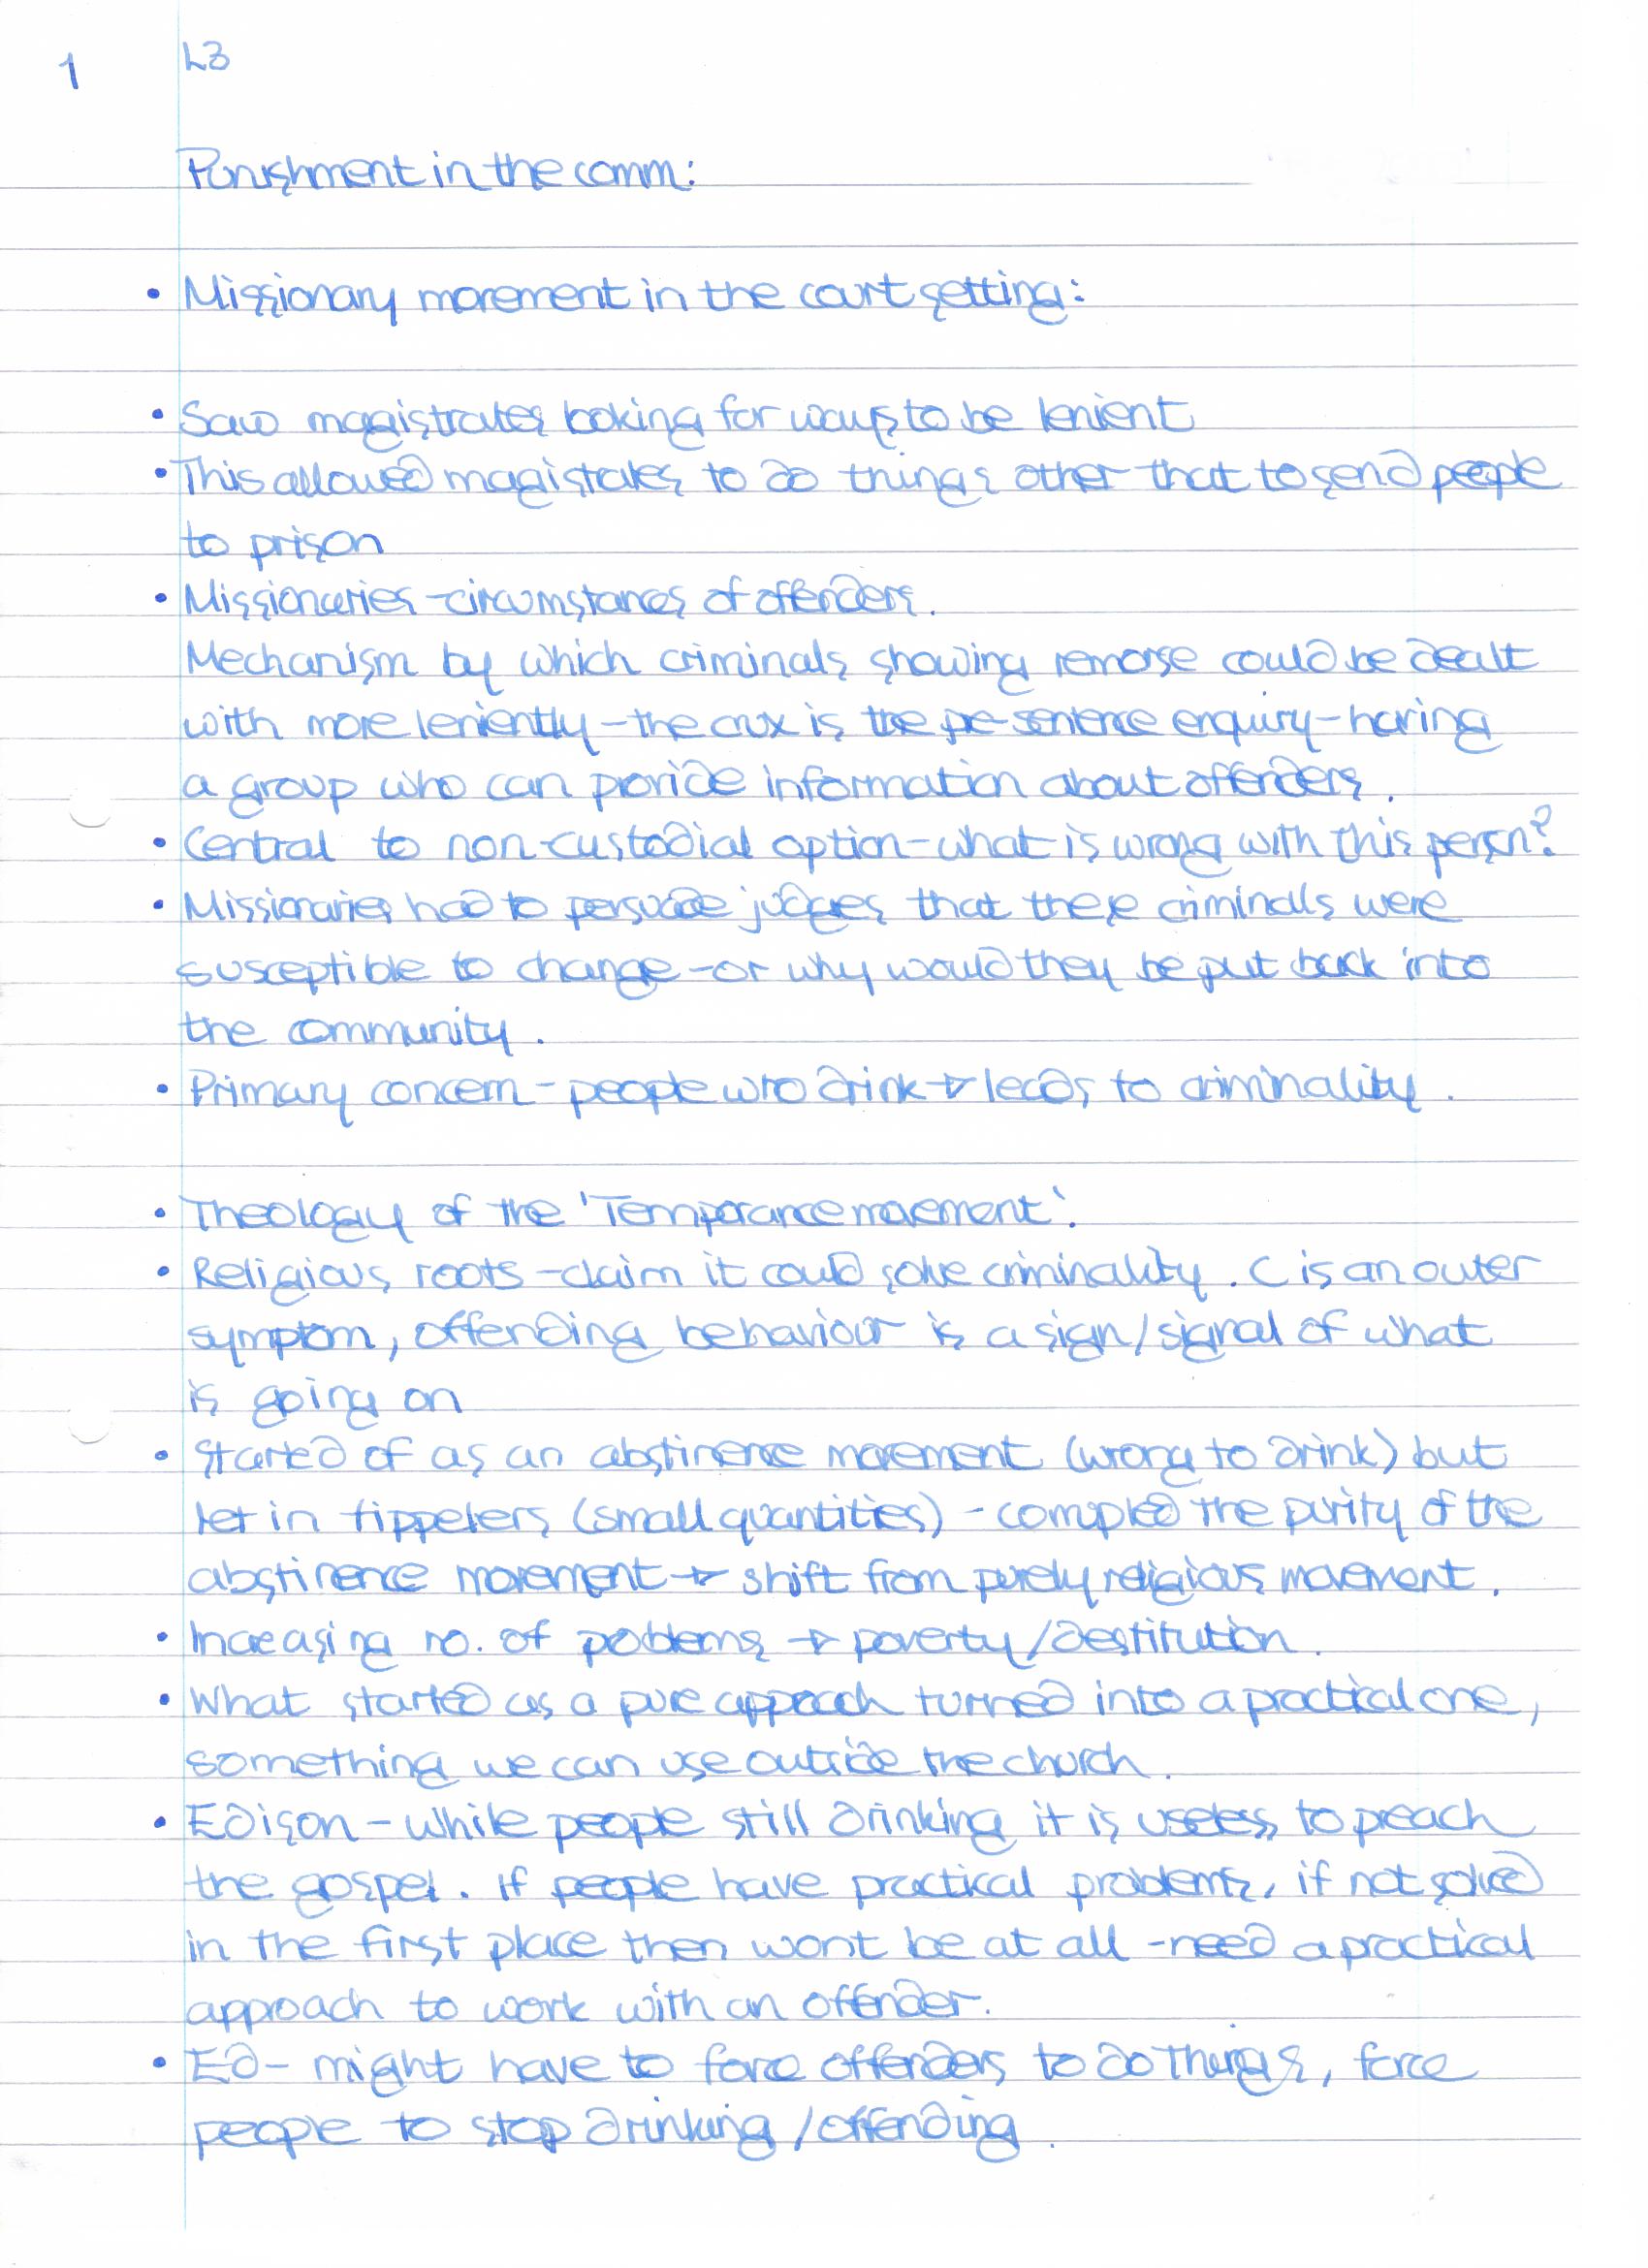 1
L3
Punishment in the comm:
• Missionary movement in the court setting:
• Saw magistrates looking for ways to be lenient
• This allowed magistates to do things other that to send people
to prison
• Missionaries - circumstances of offenders.
Mechanism by which criminals showing remorse could be dealt
with more leniently - the crux is the pre-sentence enquiry - having
a group who can provide information about offenders.
• Central to non-custodial option - what is wrong with this person?
• Missionaries had to persuade judges that these criminals were
susceptible to change - or why would they be put back into
the community.
• Primary concern - people who drink → leads to criminality.
• Theology of the 'Temperance movement'.
• Religious roots - claim it could solve criminality. C is an outer
symptom, offending behaviour is a sign/signal of what
is going on
• Started of as an abstinence movement (wrong to drink) but
let in tippelers (small quantities) - corrupted the purity of the
abstinence movement → shift from purely religious movement.
• Increasing no. of problems → poverty/destitution.
• What started as a pure approach turned into a practical one,
something we can use outside the church.
• Edison - while people still drinking it is useless to preach
the gospel. If people have practical problems, if not solved
in the first place then wont be at all - need a practical
approach to work with an offender.
• Ed - might have to force offenders to do things, force
people to stop drinking/offending.